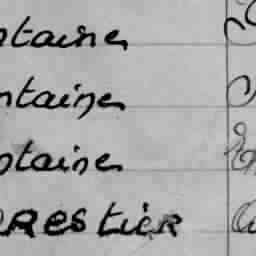 ntaine
ntaine
ntaine
RRestier